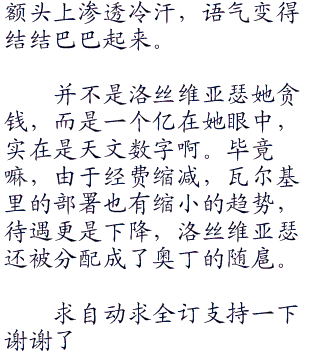 额头上渗透冷汗，语气变得
结结巴巴起来。
并不是洛丝维亚瑟她贪
钱，而是一个亿在她眼中，
实在是天文数字啊。毕竟
嘛，由于经费缩减，瓦尔基
里的部署也有缩小的趋势，
待遇更是下降，洛丝维亚瑟
还被分配成了奥丁的随扈。
求自动求全订支持一下
谢谢了